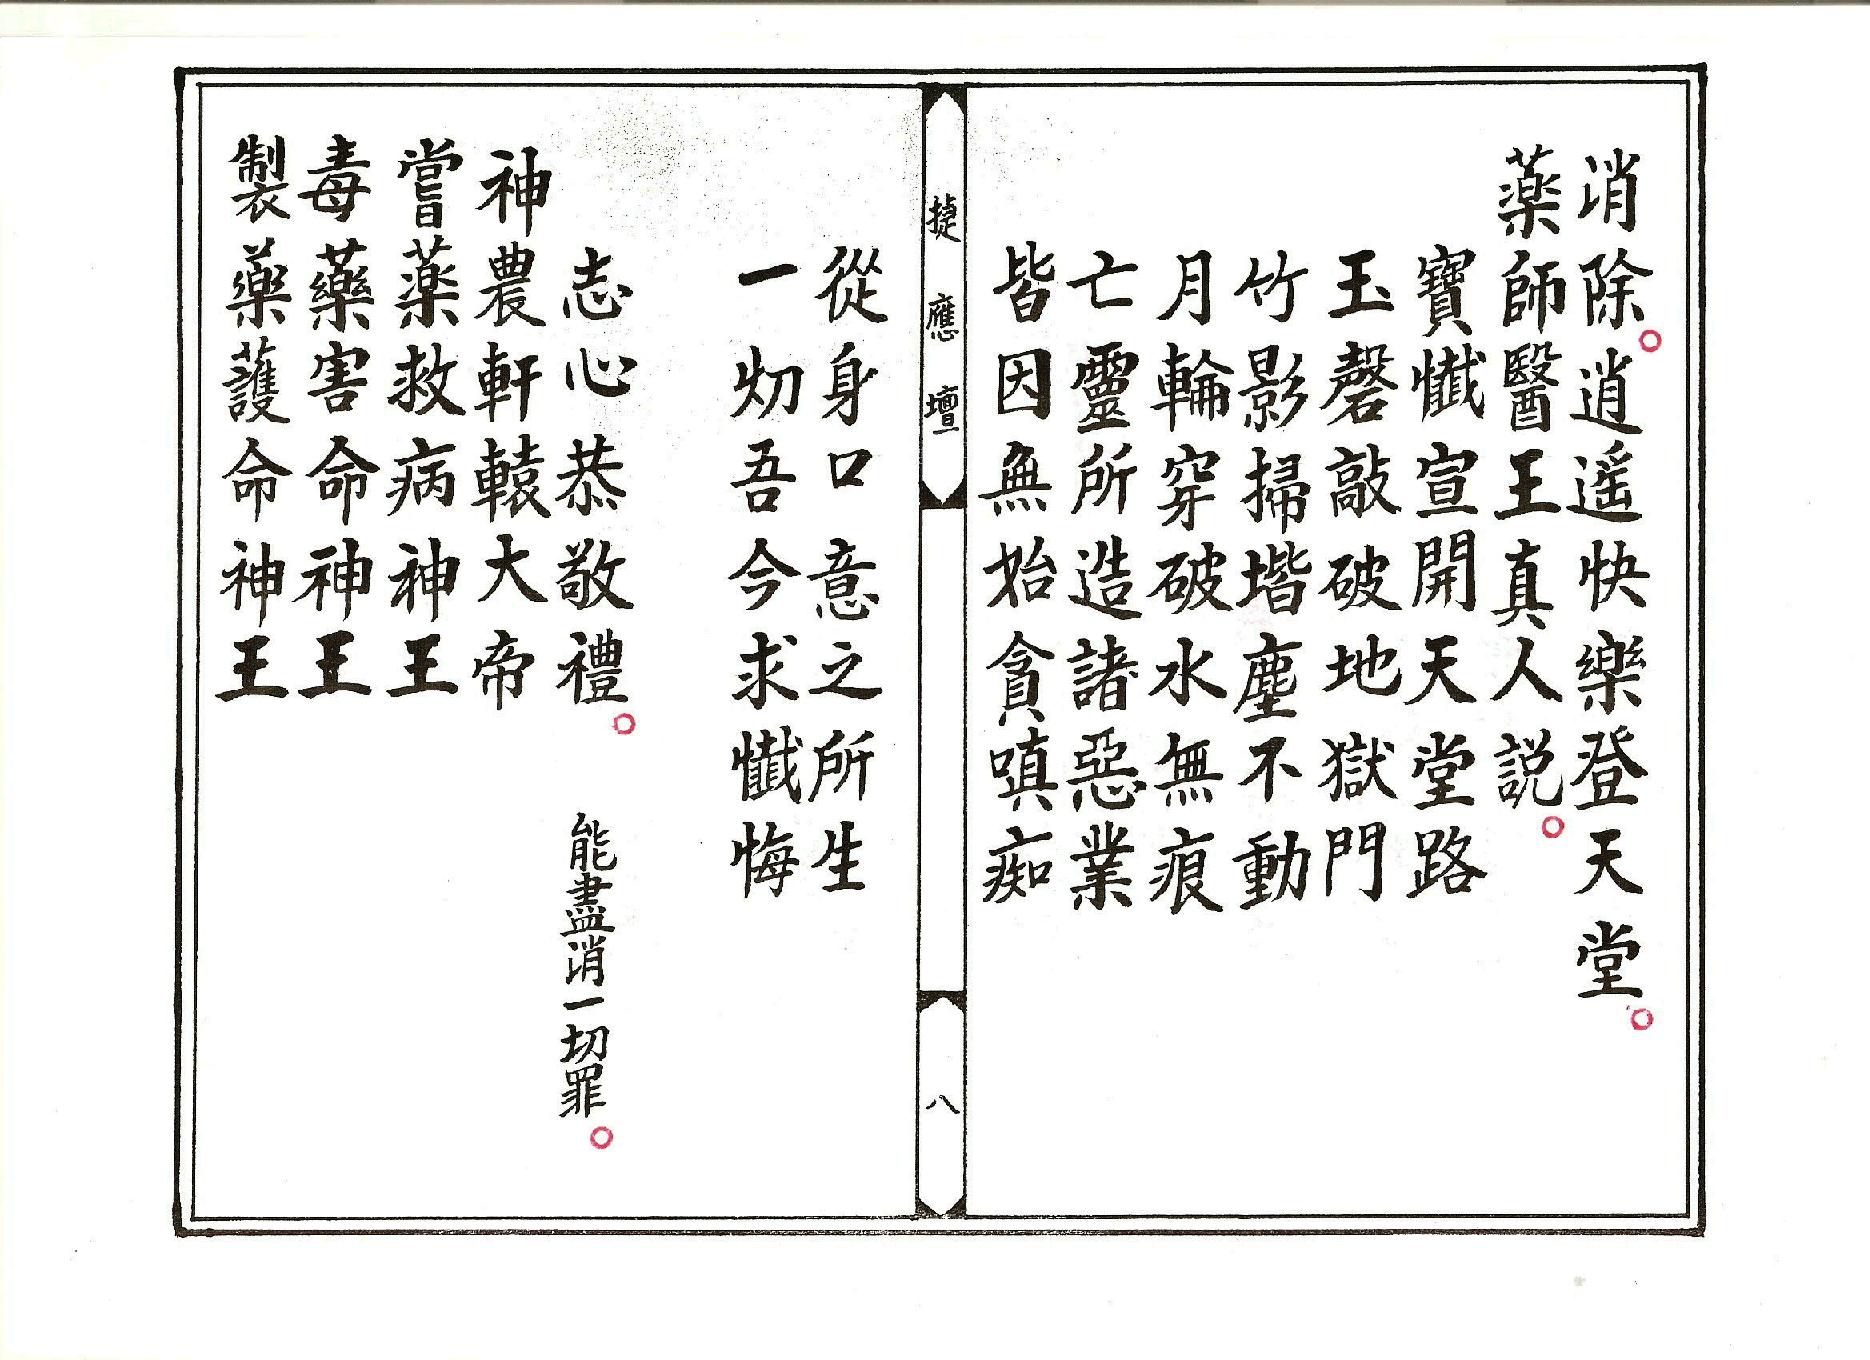 消除。逍遥快樂登天堂。
薬師醫王真人説。
寶懺宣開天堂路
玉磬敲破地獄門
竹影掃堦塵不動
月輪穿破水無痕
亡靈所造諸惡業
皆因無始貪嗔痴
捷應壇
八
從身口意之所生
一切吾今求懺悔
志心恭敬禮。能盡消一切罪。
神農軒轅大帝
嘗薬救病神王
毒藥害命神王
製藥護命神王